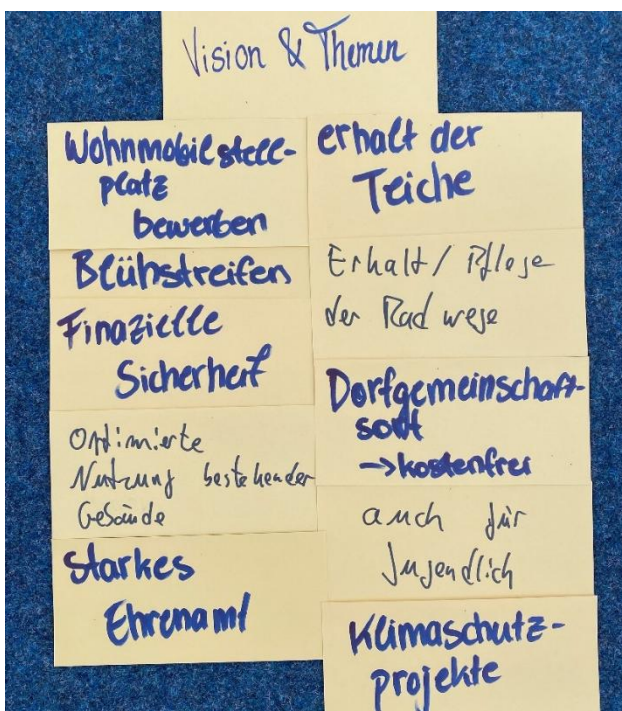 Vision & Themen
Wohnmobilstell-
platz
bewerben
Blühstreifen
Finazielle
Sicherheit
Optimierte
Nutzung bestehender
Gebäude
Starkes
Ehrenamt
erhalt der
Teiche
Erhalt/ Pflege
der Radwege
Dorfgemeinschaft-
→kostenfrei
auch für
Jugendlich
Klimaschutz-
projekte